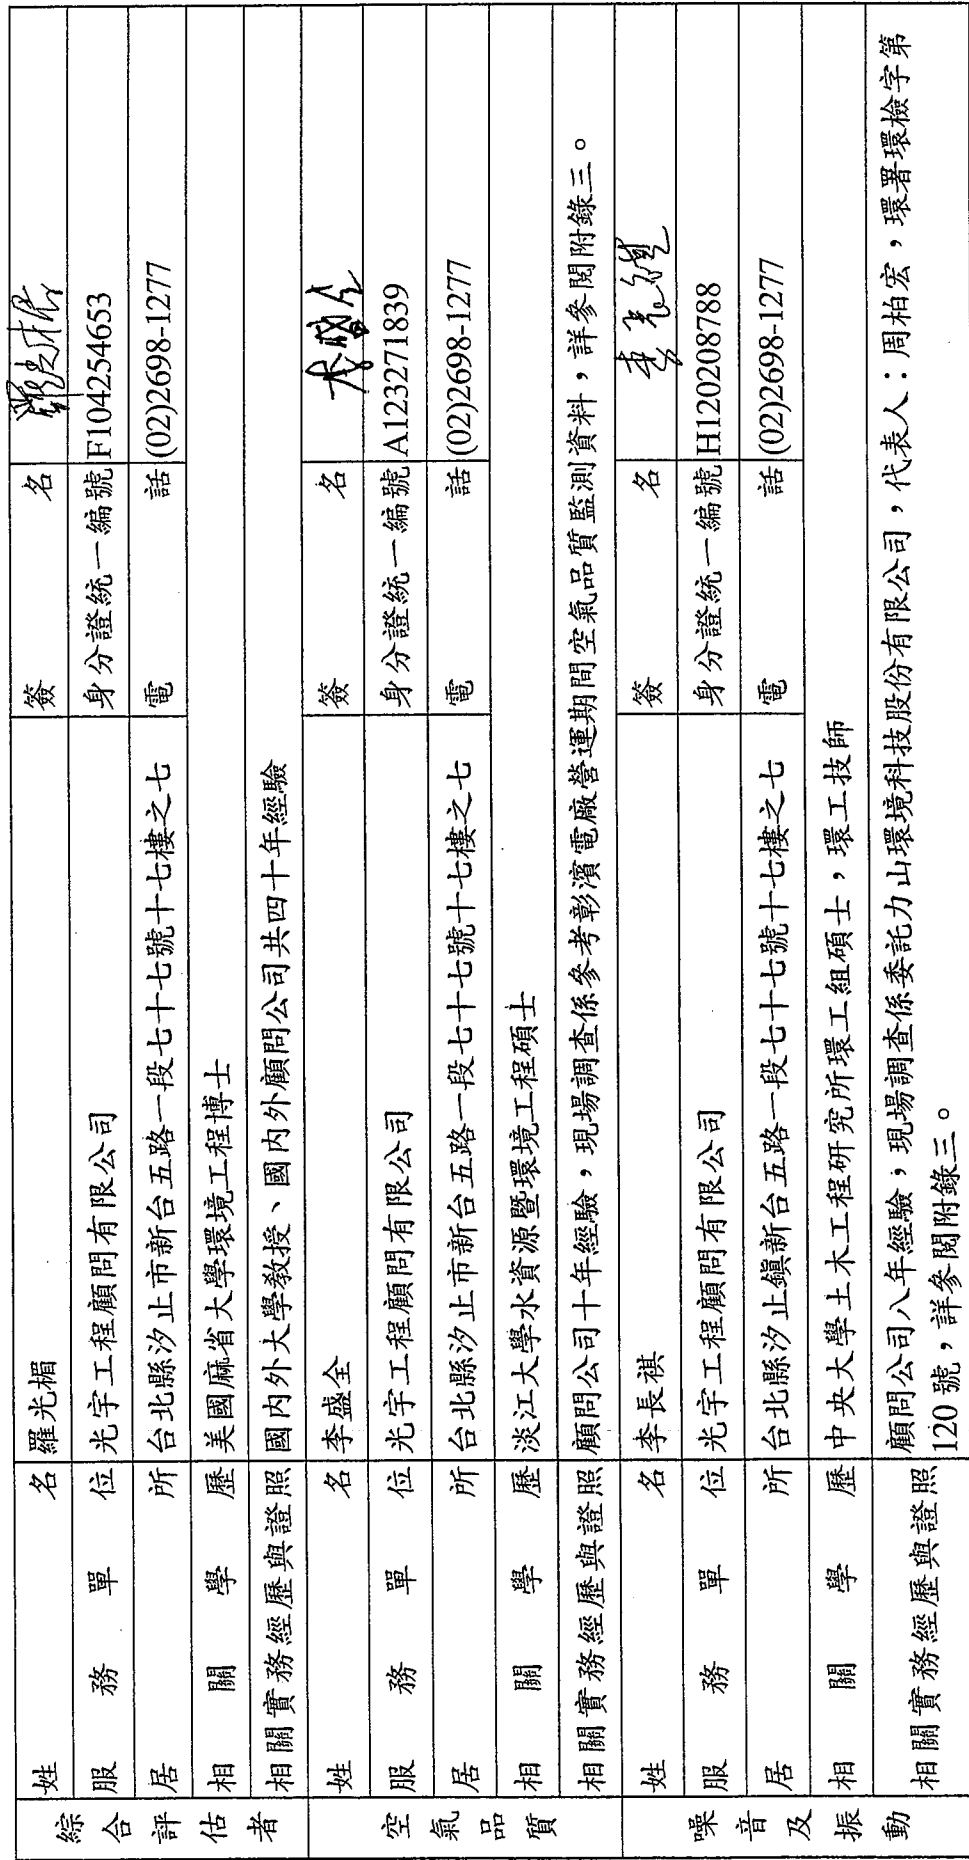 綜合評估者
姓名 羅光楣 簽名
服務單位 光宇工程顧問有限公司 身分證統一編號 F104254653
居所 台北縣汐止市新台五路一段七十七號十七樓之七 電話 (02)2698-1277
相關學歷 美國麻省大學環境工程博士
相關實務經歷與證照 國內外大學教授、國內外顧問公司共四十年經驗
空氣品質
姓名 李盛全 簽名 李盛全
服務單位 光宇工程顧問有限公司 身分證統一編號 A123271839
居所 台北縣汐止市新台五路一段七十七號十七樓之七 電話 (02)2698-1277
相關學歷 淡江大學水資源暨環境工程碩士
相關實務經歷與證照 顧問公司十年經驗，現場調查係參考彰濱電廠營運期間空氣品質監測資料，詳參閱附錄三。
噪音及振動
姓名 李長祺 簽名 李長祺
服務單位 光宇工程顧問有限公司 身分證統一編號 H120208788
居所 台北縣汐止鎮新台五路一段七十七號十七樓之七 電話 (02)2698-1277
相關學歷 中央大學土木工程研究所環工組碩士，環工技師
相關實務經歷與證照 顧問公司八年經驗，現場調查係委託力山環境科技股份有限公司，代表人：周柏宏，環署環檢字第
120號，詳參閱附錄三。